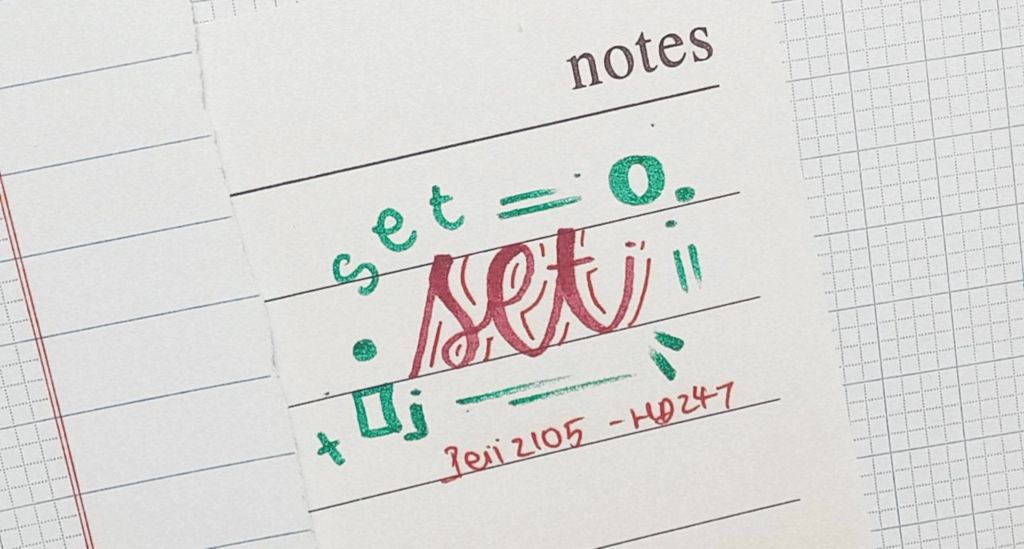 notes
set = 0.
set
j
Jeii2105 - HD247